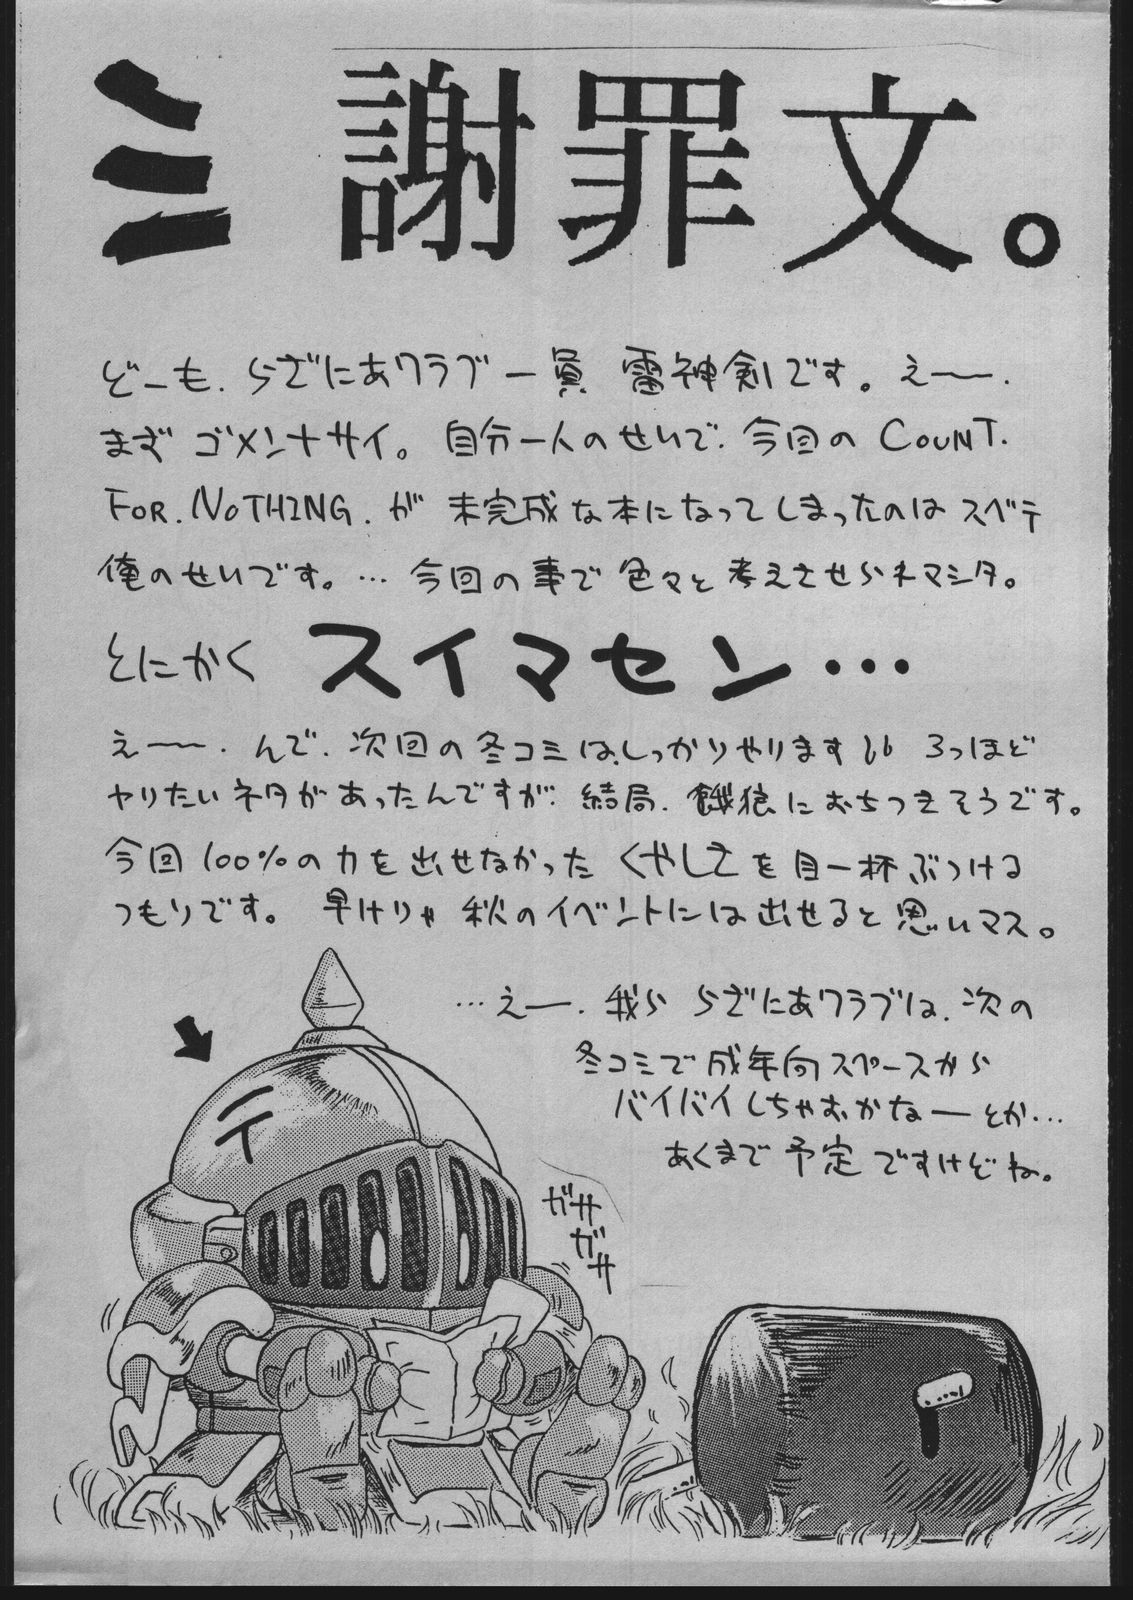 ミ 謝罪文。
どーも、らざにあクラブ一員 雷神剣です。えー〜.
まず ゴメンナサイ。自分一人のせいで、今回の COUNT.
FOR.NOTHING.が 未完成な本になってしまったのは スベテ
俺のせいです。… 今回の事で 色々と考えさせられマシタ。
とにかく スイマセン…
え〜〜.んで、次回の冬コミは、しっかりやります!!  3つほど
ヤリたいネタがあったんですが、結局、餓狼におちつきそうです。
今回100%の力を出せなかった くやしさを目一杯ぶつける
つもりです。 早けりゃ 秋のイベントには出せると思いマス。
…えー.我ら らざにあクラブは、次の
冬コミで成年向スペースから
バイバイしちゃおかなーとか…
あくまで予定ですけどね。
ガサ
ガサ